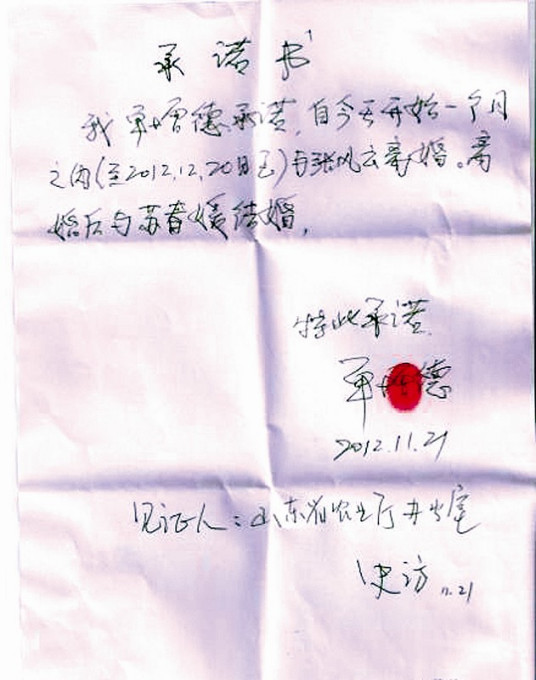 承诺书
我单增德承诺,自今天开始一个月
之内(至2012.12.20日止)与张风云离婚。离
婚后与苏春媛结婚,
特此承诺
单增德
2012.11.21
见证人:山东省农业厅办公室
史访 11.21